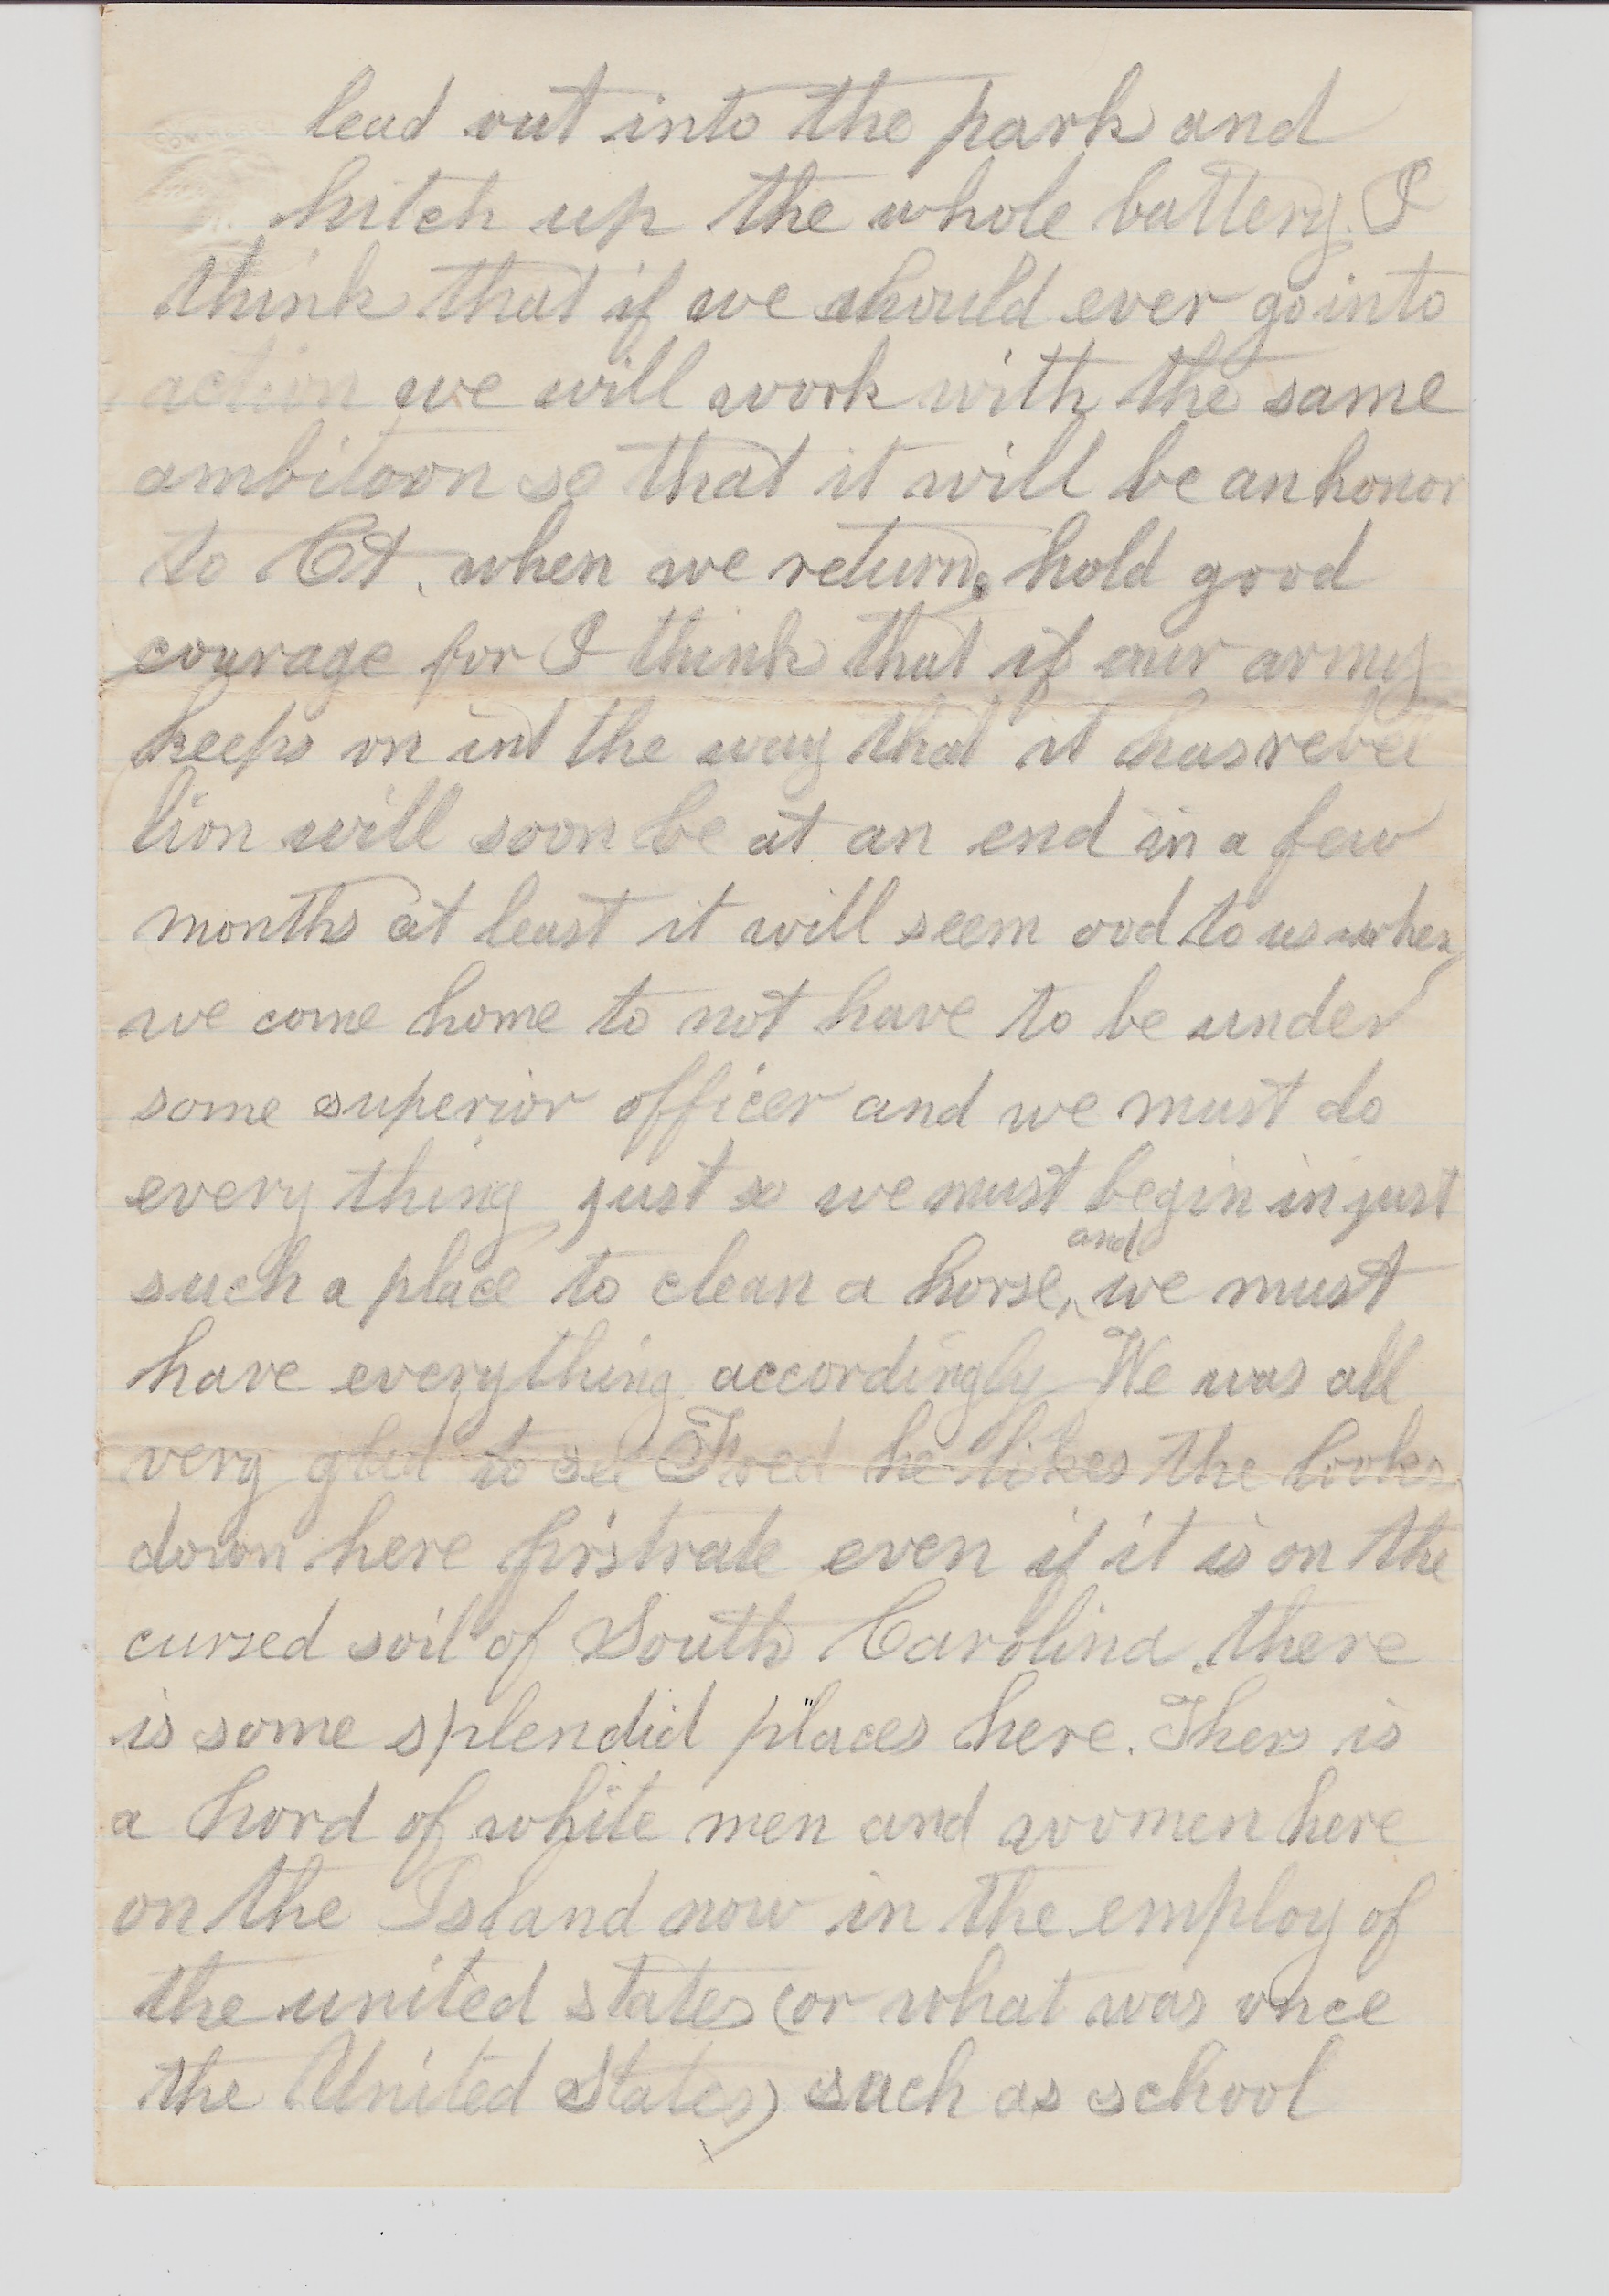 lead out into the park and
hitch up the whole battery. I
think that if we should ever go into
action we will work with the same
ambitoon so that it will be an honor
to Ct. when we return. hold good
courage for I think that if our army
keeps on int the way that it has rebel
lion will soon be at an end in a few
months at least it will seem ood to us when
we come home to not have to be under
some superior officer and we must do
every thing just so we must begin in just
and
such a place to clean a horse, we must
have everything accordingly We was all
very glad to see Fred he likes the looks
down here firstrate even if it is on the
cursed soil of South Carolina. there
is some splendid places here. Thers is
a hord of white men and women here
on the Island now in the employ of
the united states (or what was once
the United States) such as school